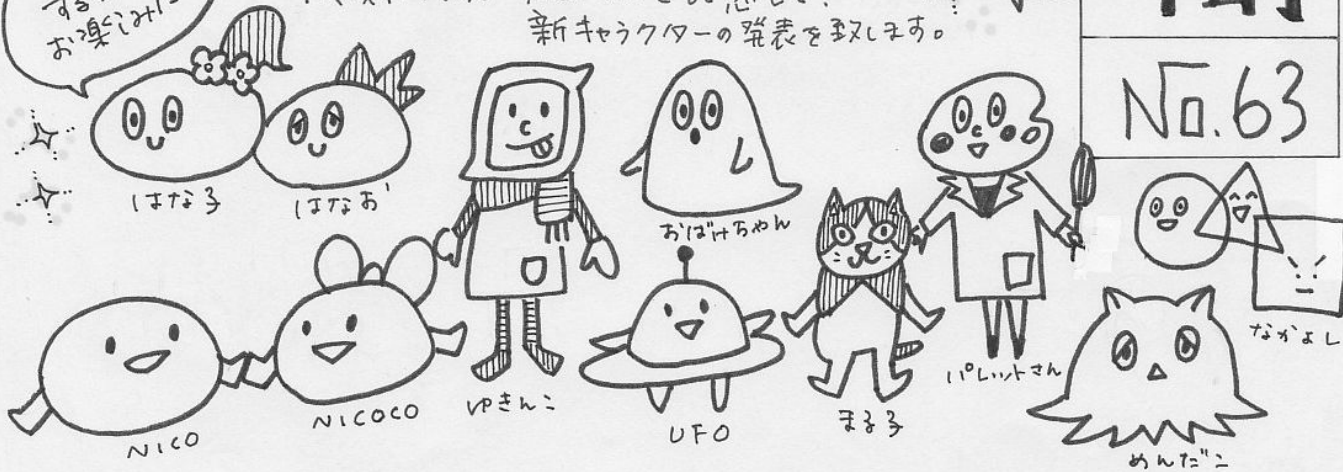 お楽しみに
新キャラクターの発表を致します。
No.63
はな子
はなお
おばけちゃん
なかよし
NICO
NICOCO
ゆきんこ
UFO
まる子
パレットさん
めんだこ